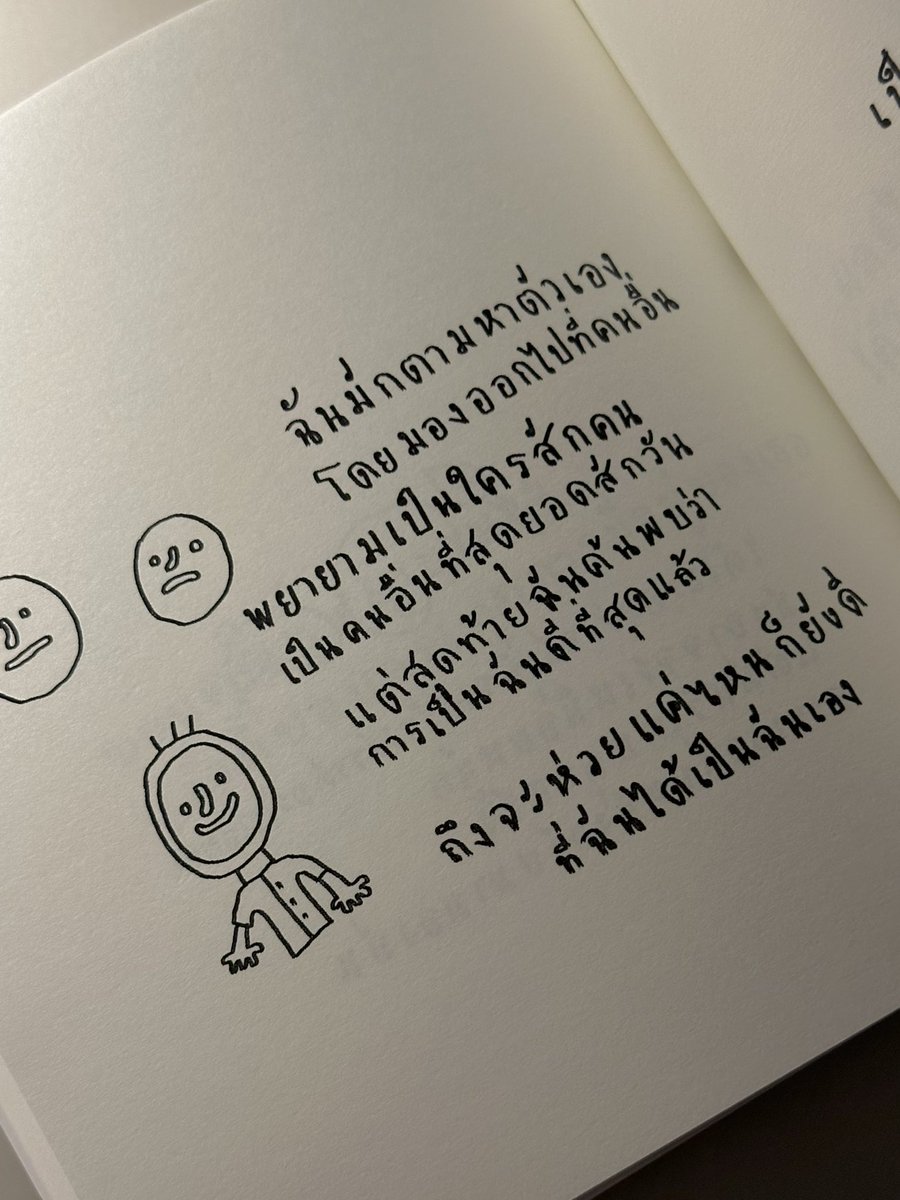 ฉันมักตามหาตัวเอง
โดยมองออกไปที่คนอื่น
พยายามเป็นใครสักคน
เป็นคนอื่นที่สุดยอดสักวัน
แต่สุดท้ายฉันค้นพบว่า
การเป็นฉันดีที่สุดแล้ว
ถึงจะห่วยแค่ไหนก็ยังดี
ที่ฉันได้เป็นฉันเอง